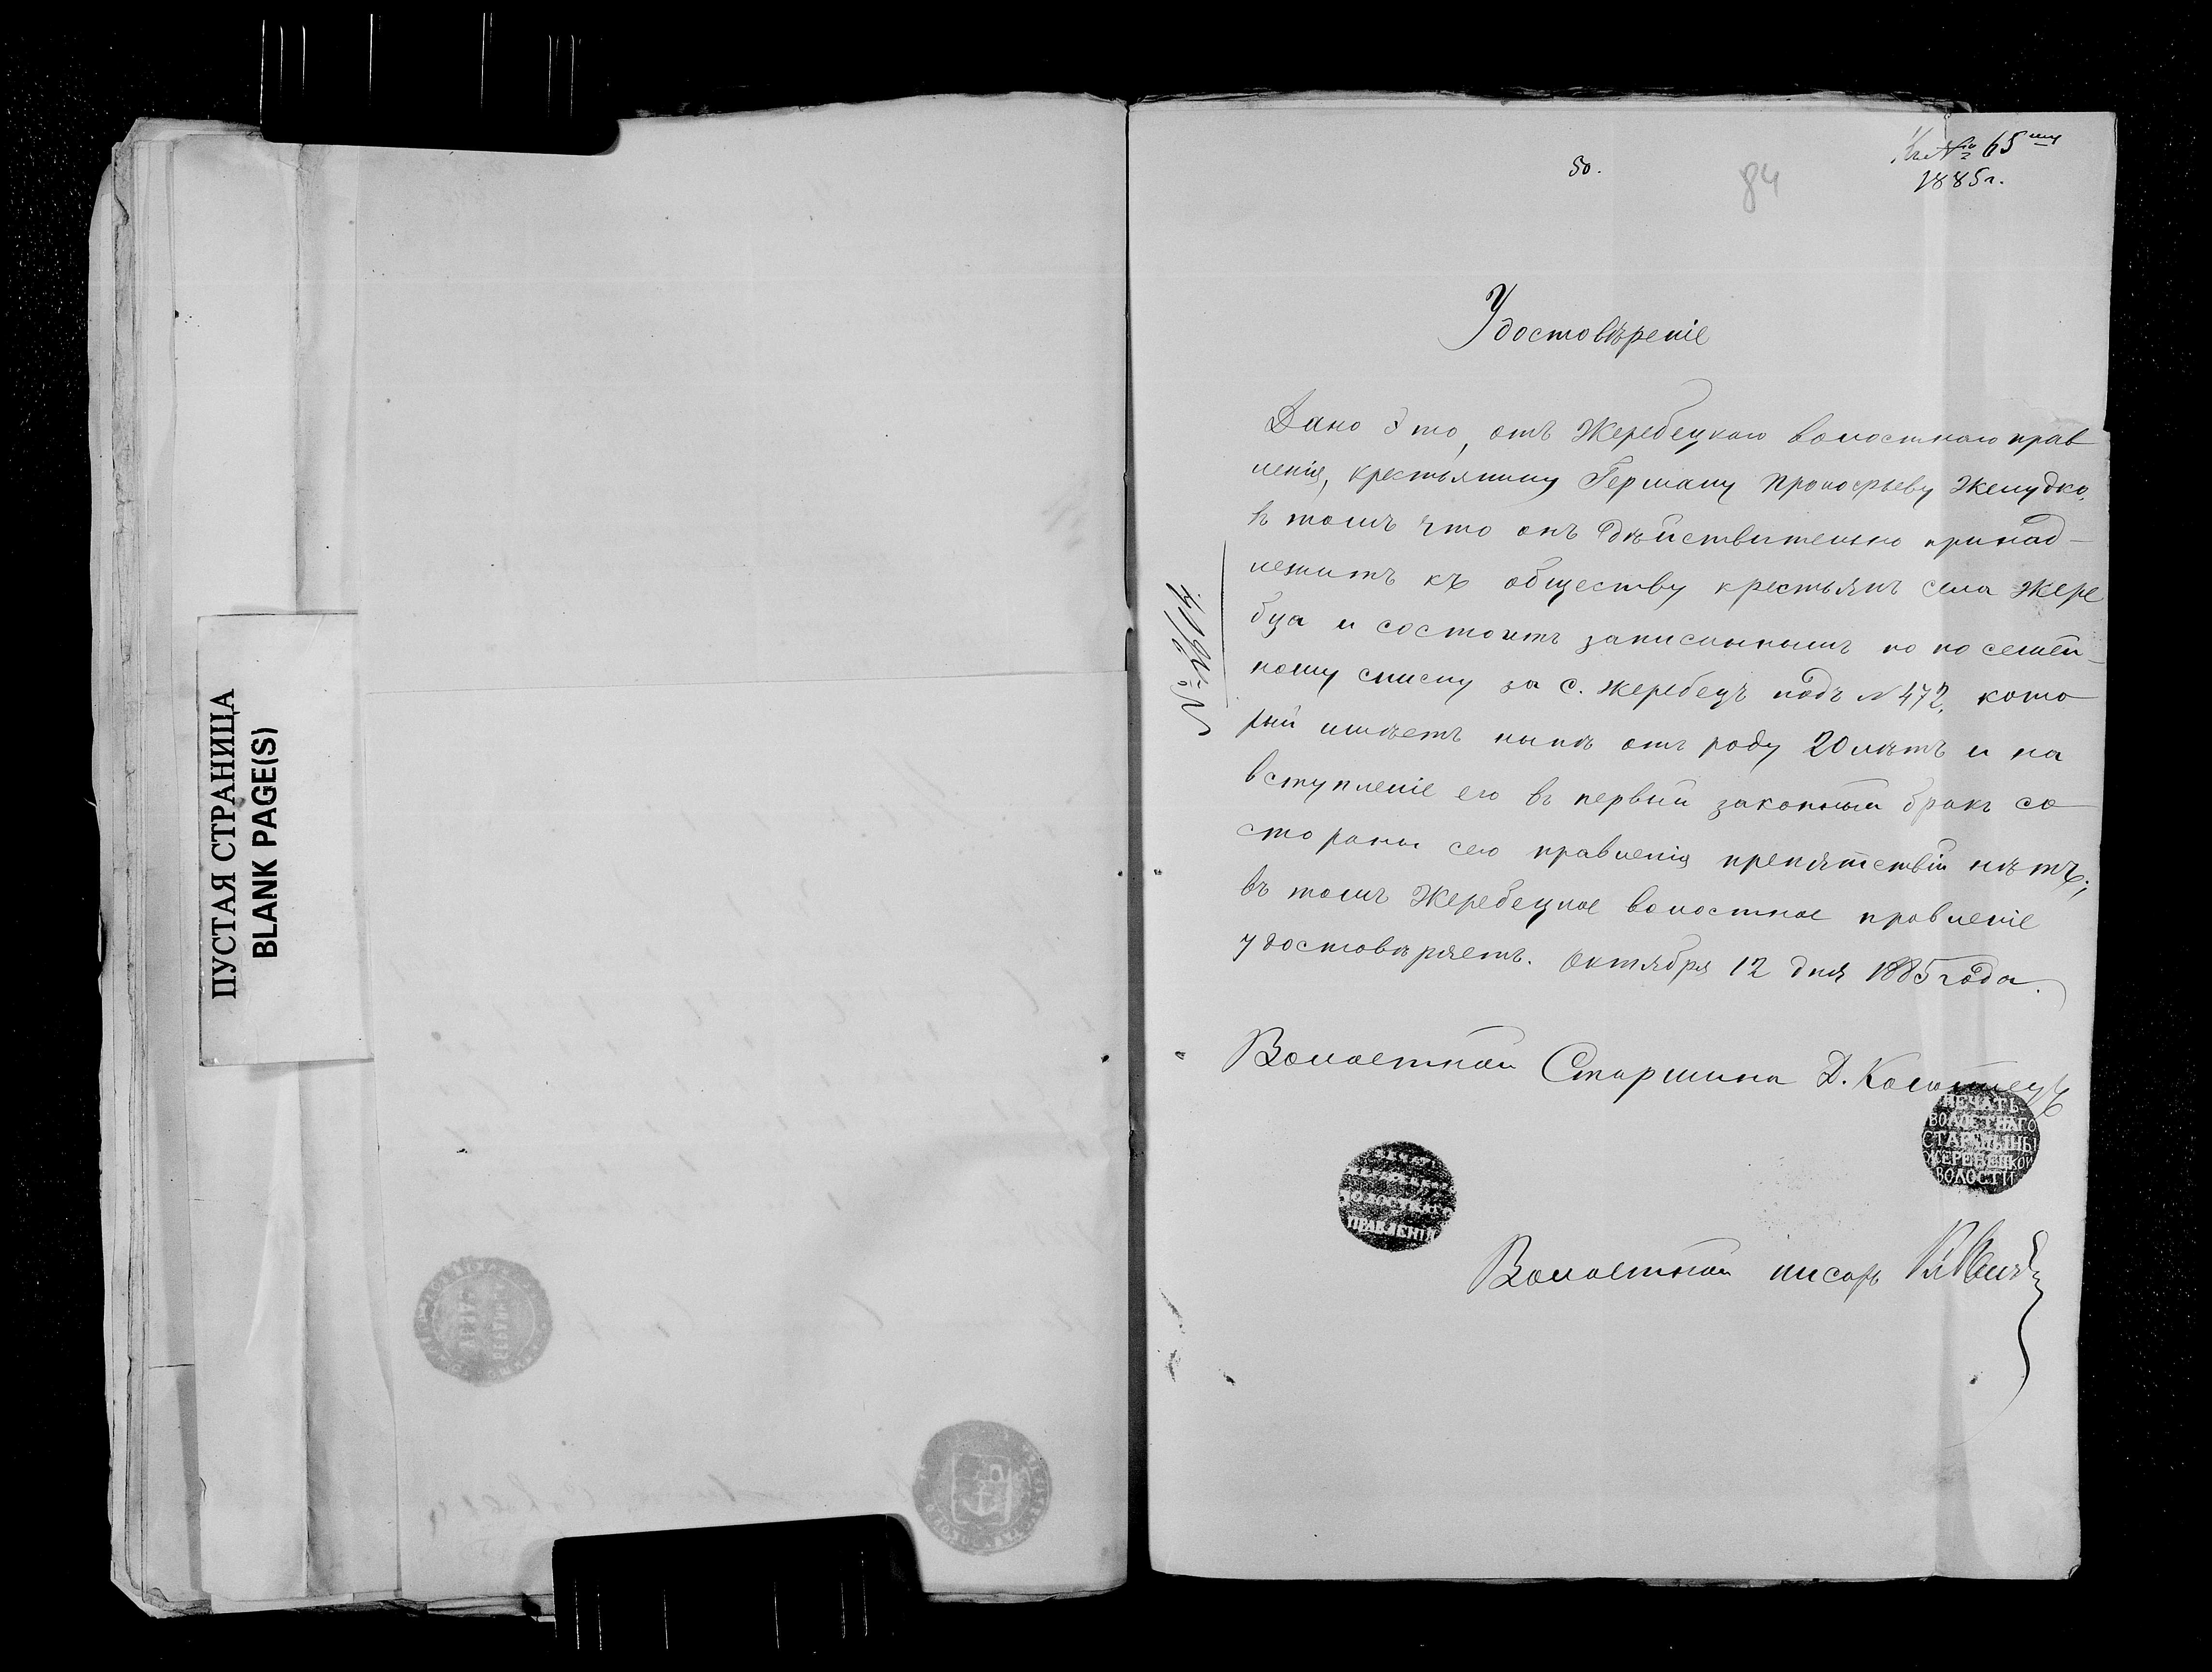 ПУСТАЯ СТРАНИЦА
BLANK PAGE(S)
50.
84
Къ № 65му
1885 г.
Удостовѣреніе
Дано это, отъ Жеребецкаго волостнаго прав
ленія, крестьянину Герману Прокофьеву Желудко,
въ томъ что онъ дѣйствительно принад-
лежитъ къ обществу крестьянъ села Жере
бца и состоитъ записаннымъ по посемей-
ному списку за с. Жеребецъ подъ № 472, кото
рый имѣетъ нынѣ отъ роду 20 лѣтъ и на
вступленіе его въ первый законный бракъ со
стороны сего правленія препятствій нѣтъ;
въ томъ Жеребецкое волостное правленіе
удостовѣряетъ. Октября 12 дня 1885 года.
Волостной Старшина Д. Коломіецъ
ПЕЧАТЬ
ВОЛОСТНАГО
СТАРШИНЫ
ЖЕРЕБЕЦКОЙ
ВОЛОСТИ
ПЕЧАТЬ
ЖЕРЕБЕЦКАГО
ВОЛОСТНАГО
ПРАВЛЕНІЯ
Волостной писарь